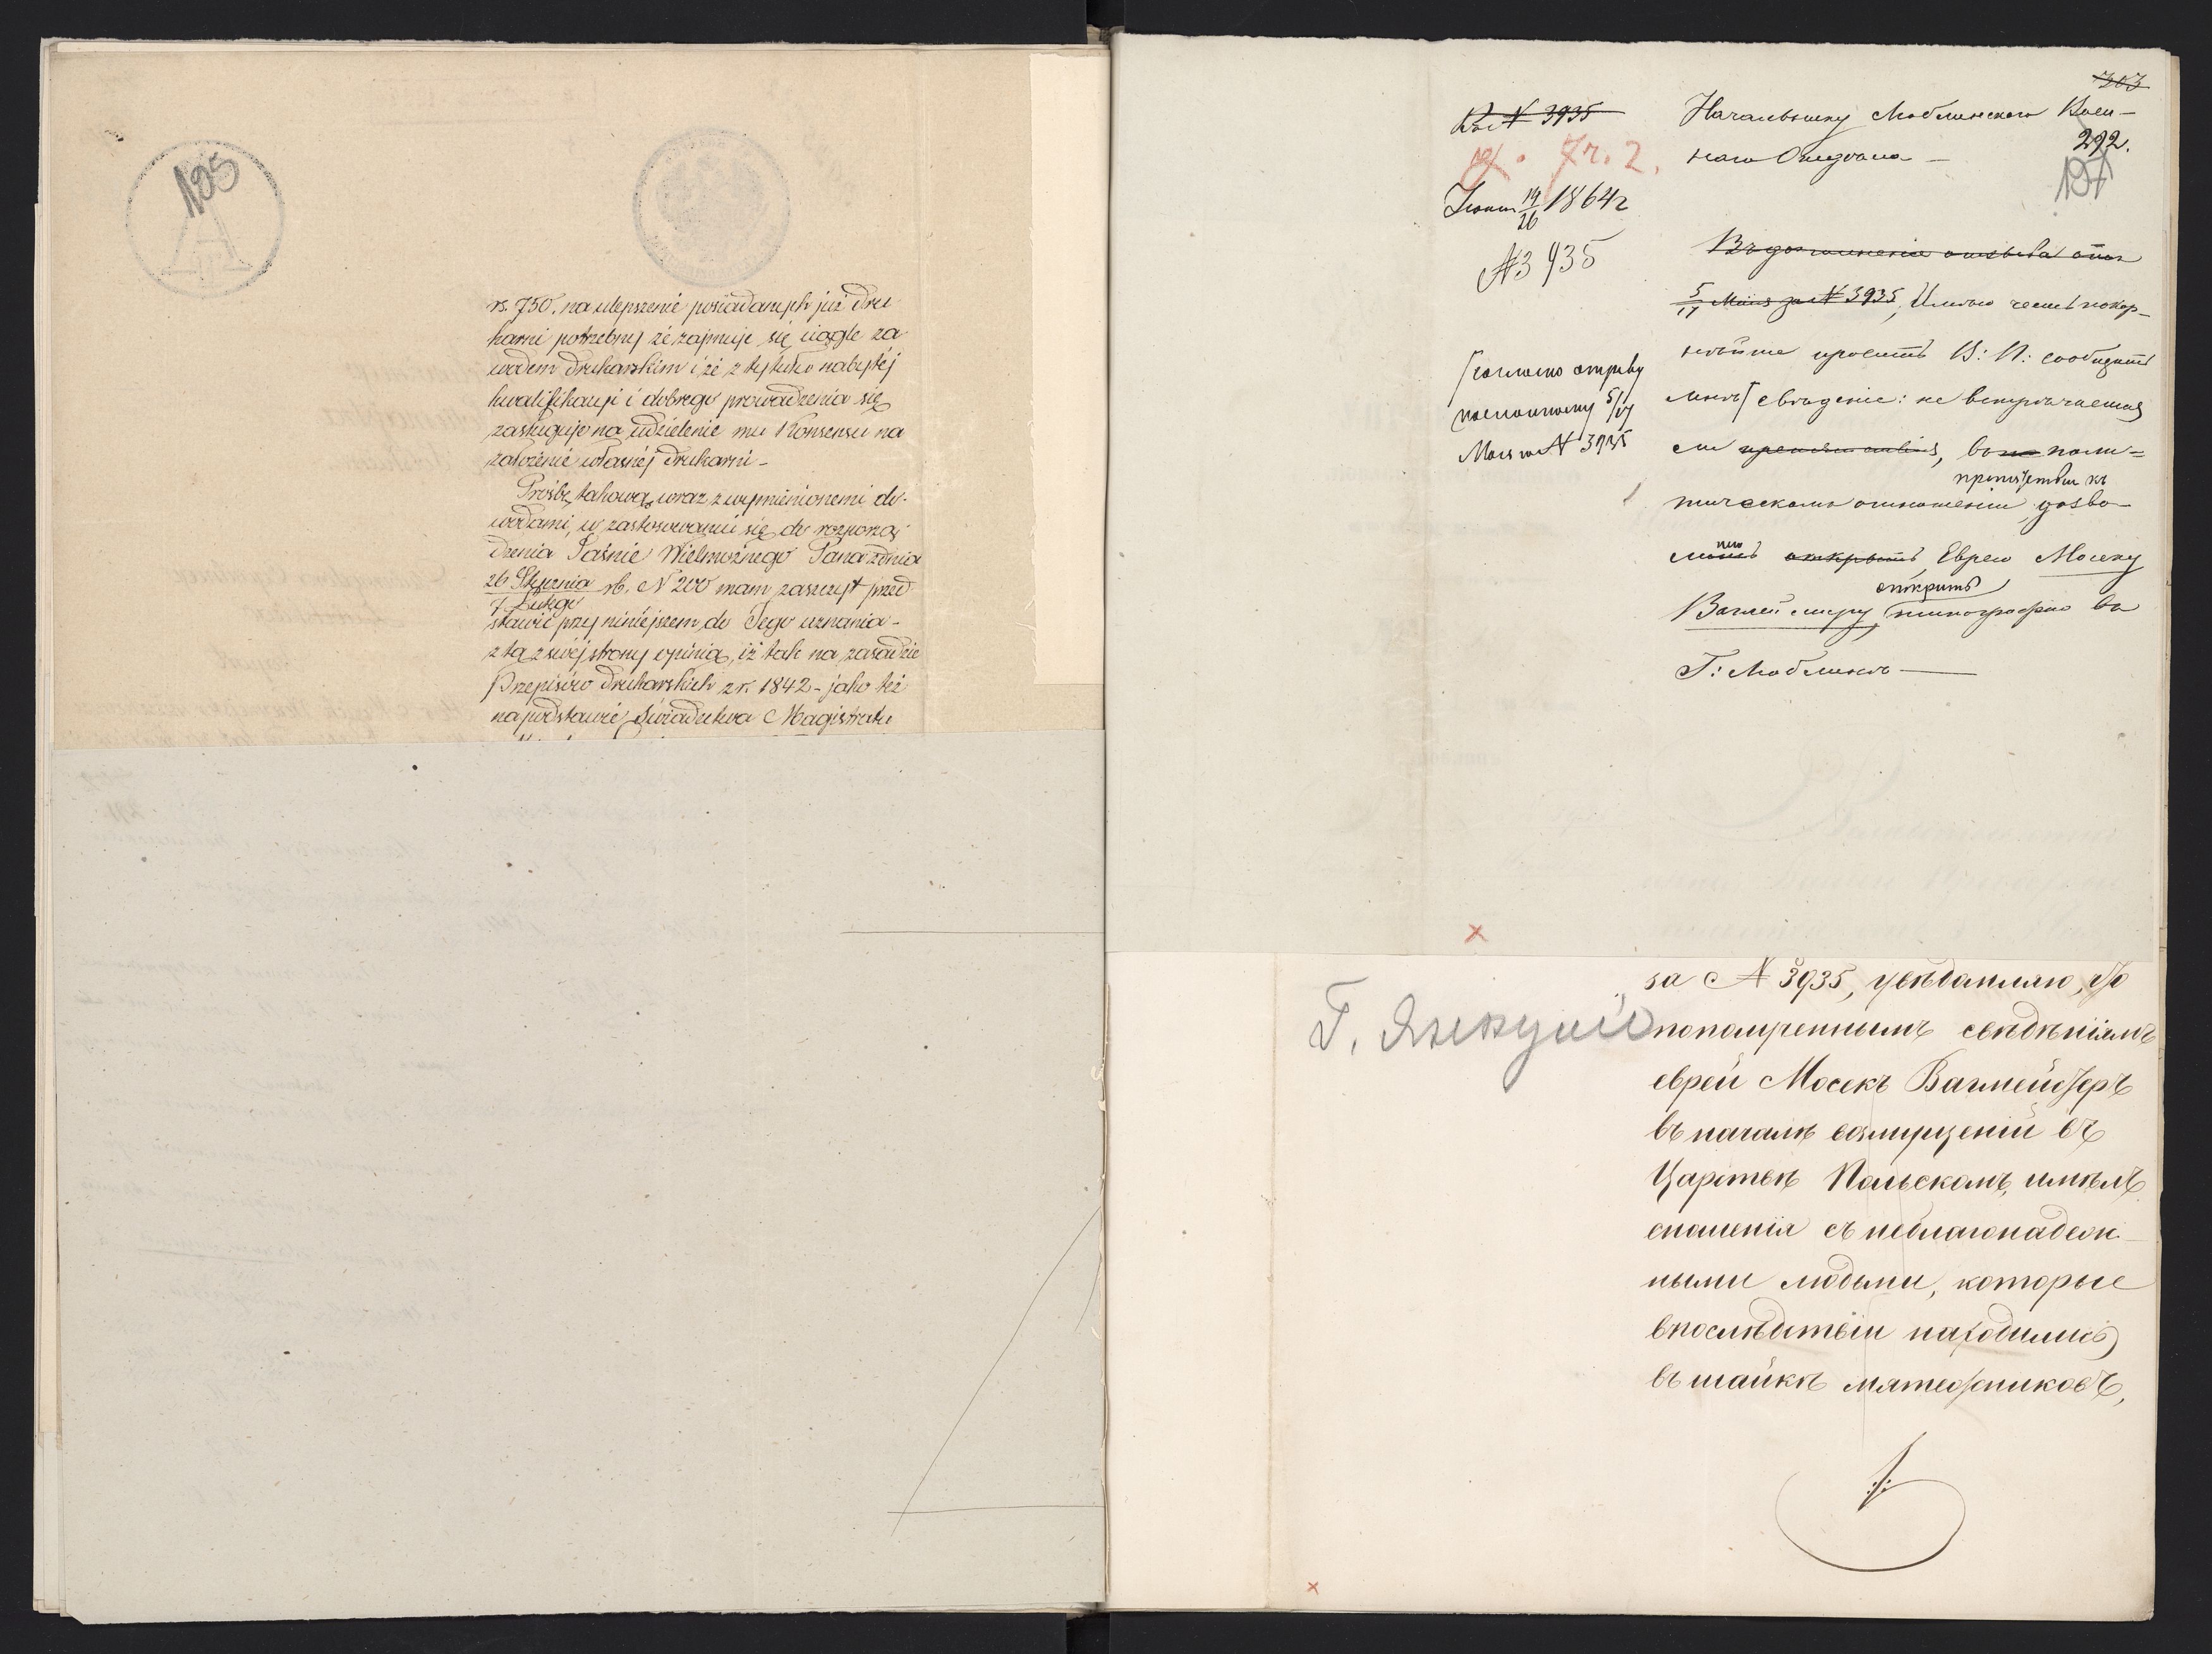 105
rs. 750. na ulepszenie posiadanych już dru
karni potrzebny że zajmuje się ciągle za
wodem drukarskim i że z tytułu nabytéj
kwalifikacji i dobrego prowadzenia się
zasługuje na udzielenie mu Konsensu na
założenie własnéj drukarni -
Prośbę takową wraz z wymienionemi do-
wodami, w zastosowaniu się do rozporzą
dzenia Jaśnie Wielmożnego Pana z dnia
26 Stycznia
7 Lutego rb. N 200 mam zaszczyt przed
stawić przy niniéjszem do Jego uznania -
z tą z swéj strony opinią, iż tak na zasadzie
Przepisów drukarskich z r. 1842 - jako też
na podstawie Świadectwa Magistratu
303
292.
197
Ко N 3935
Іюня 14/26 1864 г
N 3935
Начальнику Люблинскаго Воен-
наго Отдѣла -
Въ дополненіе отзыва отъ
5/17 Мая за N 3935, Имѣю честь покор-
нѣйше просить В: П: сообщить
мнѣ свѣденіе: не встрѣчается
ли препятствія, въ поли=
препятствія къ
тическомъ отношеніи дозво-
ленію
открыть Еврею Мосеку
открыть
Ваглейстеру типографію въ
Г: Люблинѣ -
согласно отзыву
посланному 5/17
Мая N 3935
за N 3935, увѣдомляю, что
по полученнымъ свѣдѣніямъ
еврей Мосекъ Вагмейстеръ
въ началѣ возмущеній въ
Царствѣ Польскомъ, имѣлъ
сношенія съ неблагонадеж-
ными людьми, которые
впослѣдствіи находились
въ шайкѣ мятежниковъ,